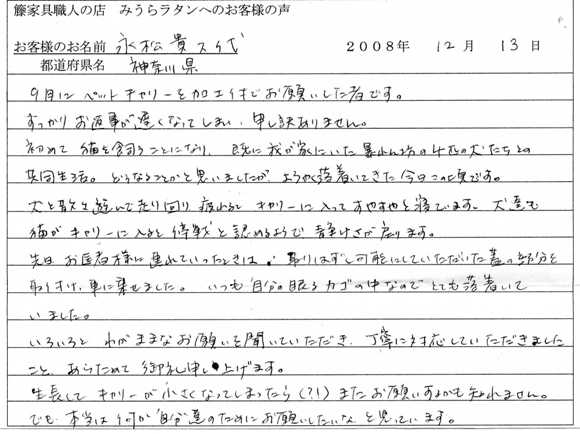 籐家具職人の店　みうらラタンへのお客様の声
お客様のお名前　永松貴久代　2008年　12月　13日
都道府県名　神奈川県
9月に ペットキャリーを加工付でお願いした者です。
すっかりお返事が遅くなってしまい、申し訳ありません。
初めて 猫を飼うことになり、既に我が家にいた暴れん坊の4匹の犬たちとの
共同生活。どうなることかと思いましたが、ようやく落着いてきた今日この頃です。
犬と散々遊んで走り回り 疲れると キャリーに入ってすやすやと寝ています。犬達も
猫が キャリーに入ると 停戦と認めるようで 静けさが戻ります。
先日 お医者様に連れていったときは、取りはずし可能にしていただいた蓋の部分を
取り付け、車に乗せました。いつも自分の眠るカゴの中なので とても落着いて
いました。
いろいろと わがままなお願いを聞いていただき、丁寧に対応していただきました
こと、あらためて 御礼申し上げます。
生長して キャリーが小さくなってしまったら(?!) またお願いするかも知れません。
でも 本当は 何か自分達のためにお願いしたいな と思っています。